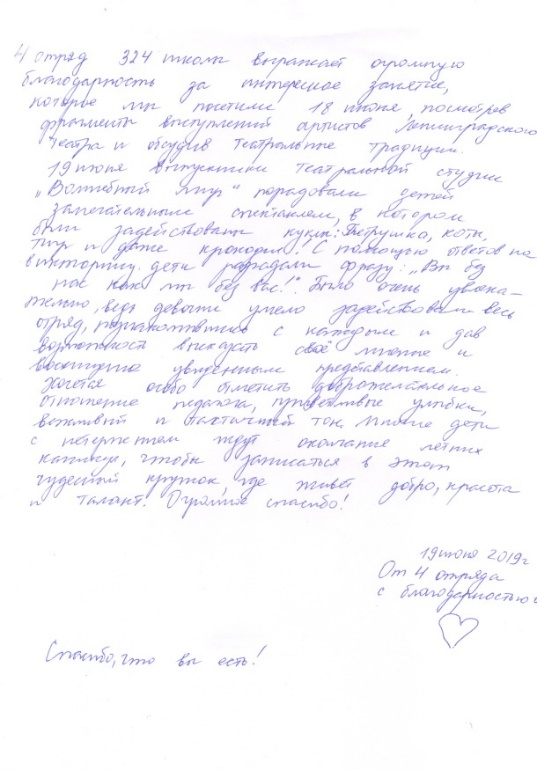 4 отряд 324 школы выражает огромную
благодарность за интересное занятие,
которое мы посетили 18 июня, посмотрев
фрагменты выступлений артистов Ленинградского
театра и обсудив театральные традиции.
19 июня выпускники театральной студии
„Волшебный мир" порадовали детей
замечательным спектаклем, в котором
были задействованы куклы: Петрушка, коты,
и даже крокодил! С помощью ответов на
викторину дети разгадали фразу: „Вы без
нас как мы без вас!". Было очень увлека-
тельно, ведь девочки умело задействовали весь
отряд, познакомившись с каждым и дав
возможность высказать своё мнение и
восхищение увиденным представлением.
Хочется особо отметить доброжелательное
отношение педагога, приветливые улыбки,
вежливый и тактичный тон. Многие дети
с нетерпением ждут окончание летних
каникул, чтобы записаться в этот
чудесный кружок, где живёт добро, красота
и талант! Огромное спасибо!
19 июня 2019г
От 4 отряда
с благодарностью
Спасибо, что вы есть!